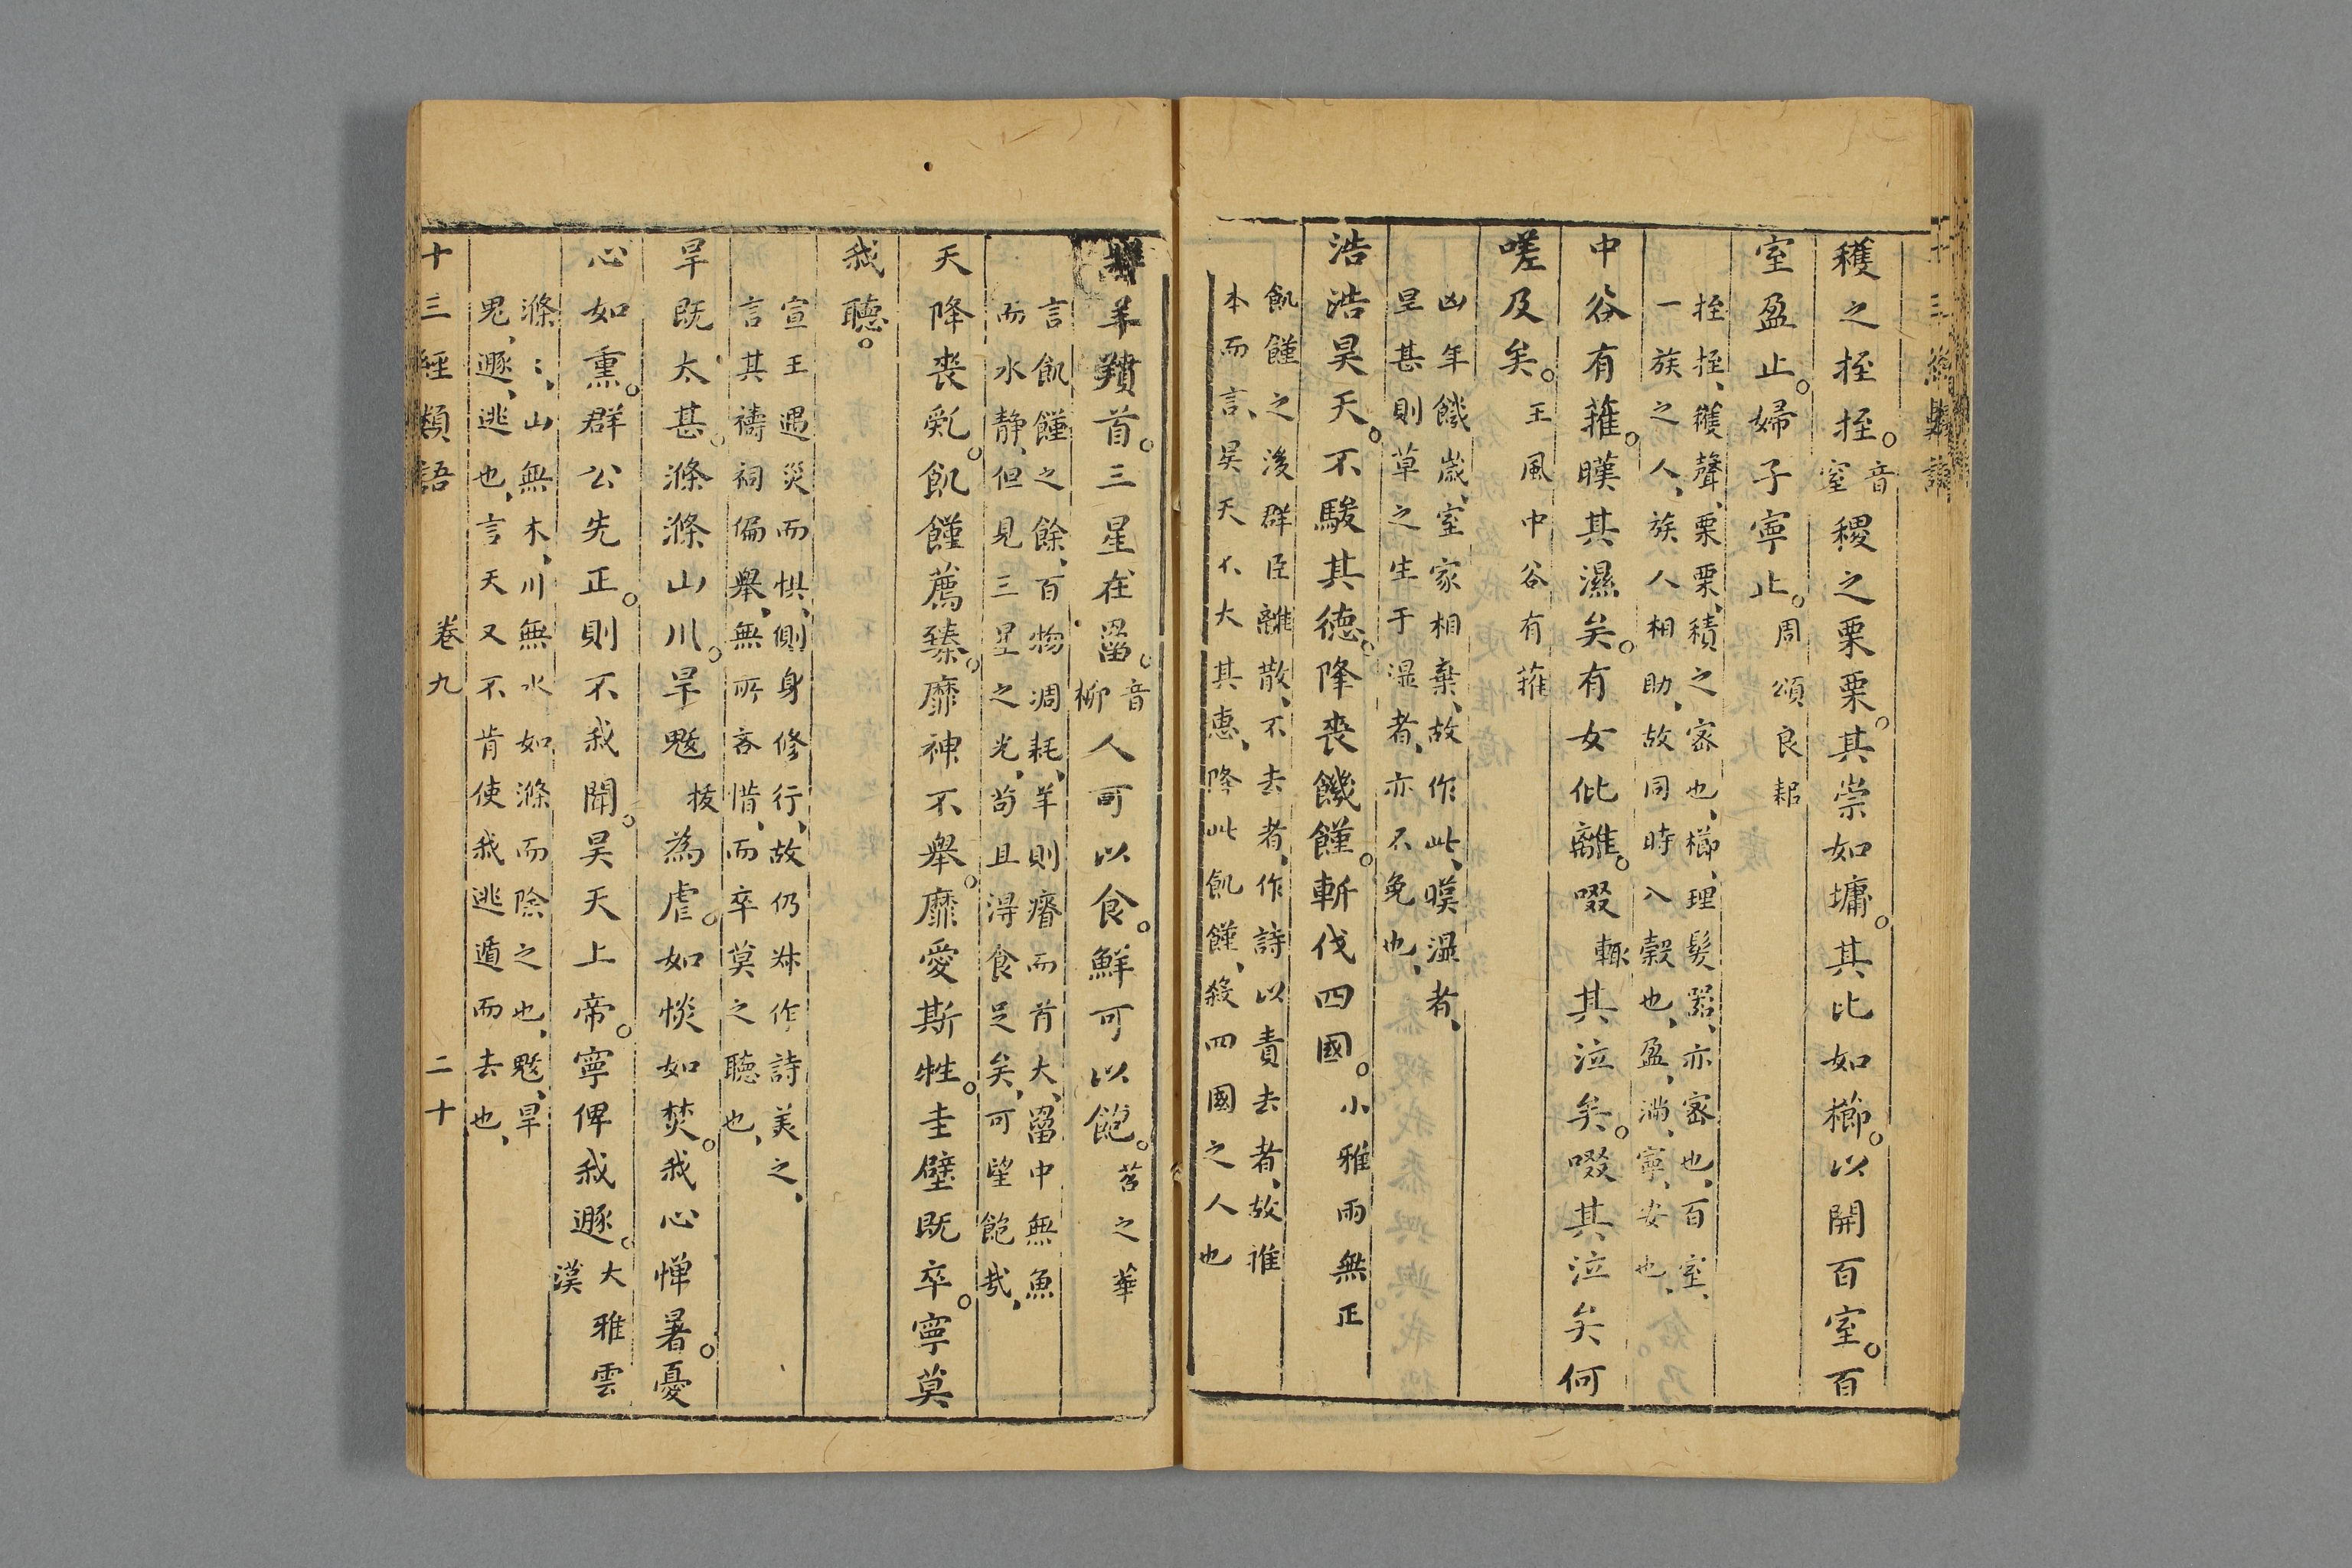 十三經類語
穫之挃挃。音窒稷之栗栗。其崇如墉。其比如櫛。以開百室。百
室盈止。婦子寧止。周頌良耜
挃挃、穫聲、栗栗、積之密也、櫛、理髮器、亦密也、百室、
一族之人、族人相助、故同時入穀也、盈、滿、寧、安也、
中谷有蓷。暵其濕矣。有女仳離。啜輒其泣矣。啜其泣矣何
嗟及矣。王風中谷有蓷
凶年饑歲、室家相棄、故作此、暵濕者、
旱甚則草之生于濕者、亦不免也、
浩浩昊天。不駿其德。降喪饑饉。斬伐四國。小雅雨無正
飢饉之後群臣離散、不去者、作詩以責去者、故推
本而言、昊天不大其惠、降此飢饉、殺四國之人也
牂羊羵首。三星在罶。音柳人可以食。鮮可以飽。苕之華
言飢饉之餘、百物凋耗、羊則瘠而首大、罶中無魚
而水静、但見三星之光、苟且得食足矣、可望飽哉、
天降喪亂。飢饉薦臻。靡神不舉。靡愛斯牲。圭璧既卒。寧莫
我聽。
宣王遇災而惧、側身修行、故仍叔作詩美之、
言其禱祠徧舉、無所吝惜、而卒莫之聽也、
旱既太甚。滌滌山川。旱魃拔為虐。如惔如焚。我心憚暑。憂
心如熏。群公先正。則不我聞。昊天上帝。寧俾我遯。大雅雲漢
滌：、山無木、川無水如滌而除之也、魃、旱
鬼、遯、逃也、言天又不肯使我逃遁而去也、
十三經類語 卷九 二十